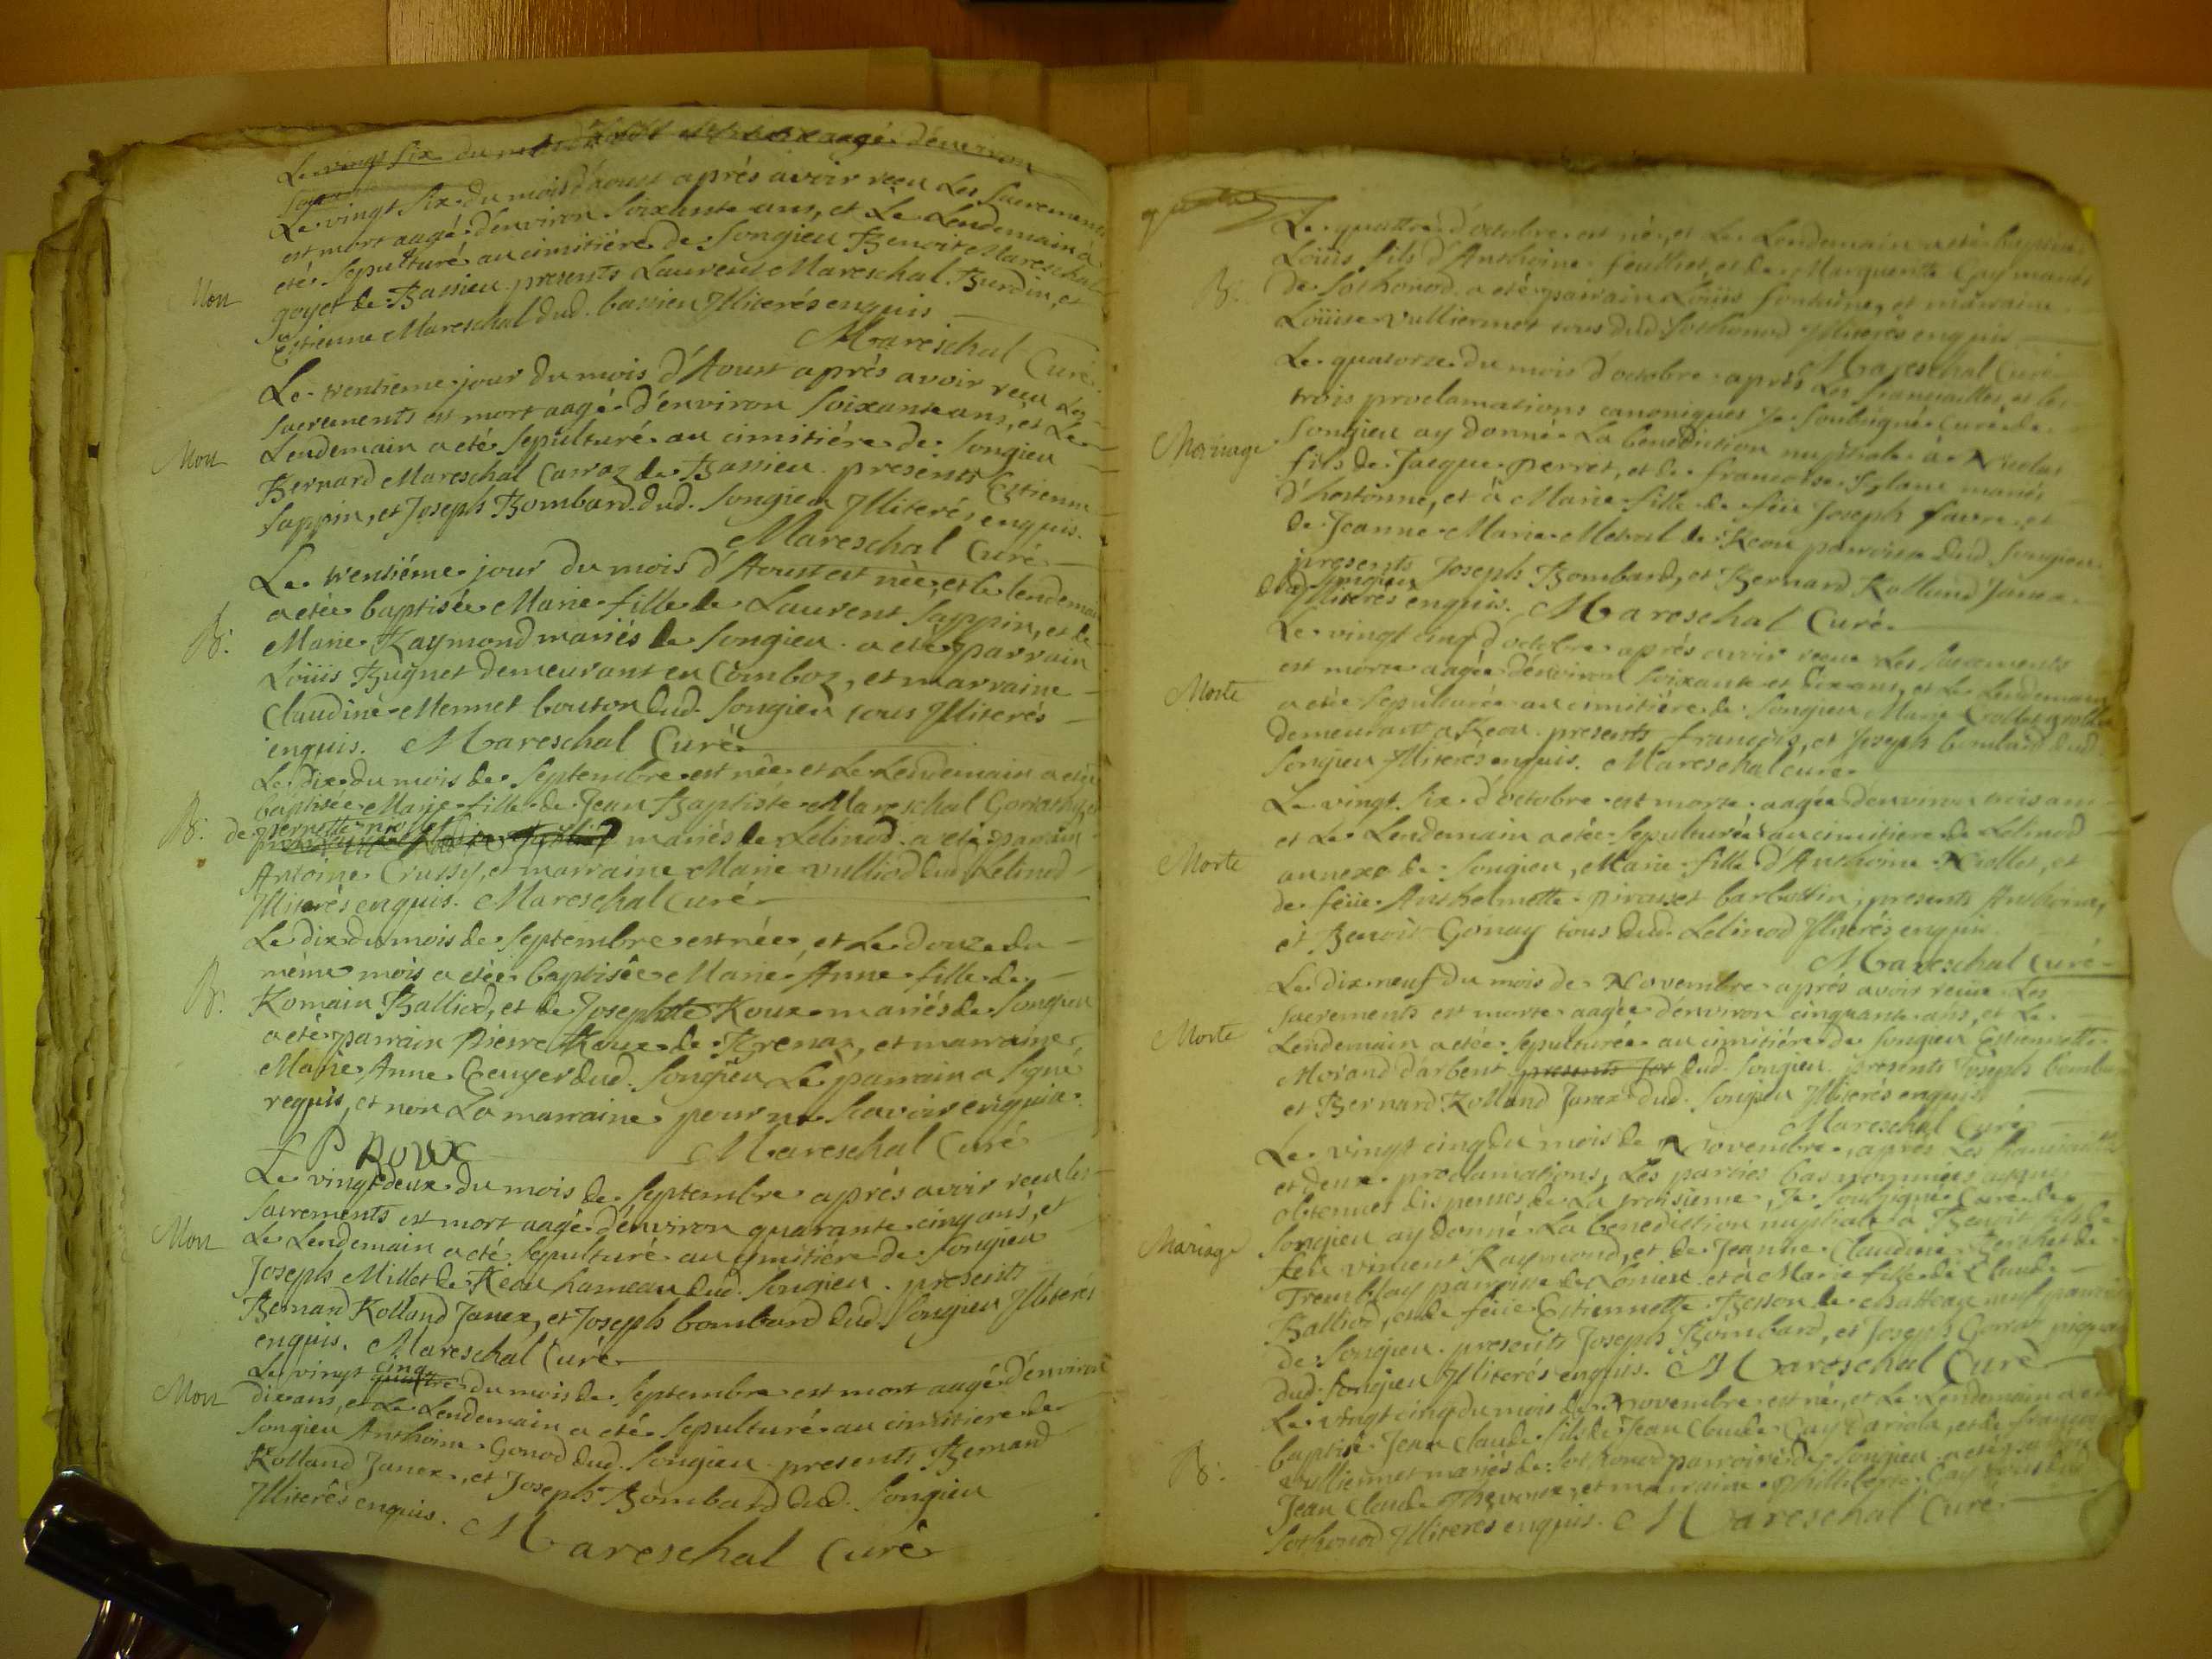 Le vingt six du aagé d'environ
Le vingt six du mois d'aoust aprés avoir receu Les Sacrements
est mort aagé d'environ Soixante ans, et Le Lendemain à
eté Sepulturé au cimitiére de Songieu Benoit Mareschal
Mort
goyet de Bassieu presents Laurent Mareschal Burdin, et
Estienne Mareschal dud. bassieu Jlliterés enquis
Mareschal Curé
Le trentieme jour du mois d'Aoust aprés avoir receu Les
Sacrements est mort aagé d'environ Soixante ans, et Le
Mort
Lendemain a eté Sepulturé au cimitiére de Songieu
Bernard Mareschal Carraz de Bassieu presents Estienne
Sappin, et Joseph Bombard dud. Songieu Jlliterés enquis.
Mareschal Curé
Le trentiéme jour du mois d'Aoust est née, et le lendemain
a etée baptisée Marie fille de Laurent Sappin, et de
B:
Marie Raymond mariés de Songieu a eté parrain
Loüis Bugnet demeurant en Comboz, et marraine
Claudine Mermet bouton dud. Songieu tous Jlliterés
enquis. Mareschal Curé
Le dix du mois de Septembre est née et Le Lendemain a etée
baptisée Marie fille de Jean Baptiste Mareschal
B: de pernette mariés de Lelinod a eté parrain
Antoine Crussy, et marraine Marie vulliod dud Lelinod
Jlliterés enquis. Mareschal Curé
Le dix du mois de Septembre est née, et Le douze du
même mois a etée baptisée Marie Anne fille de
B:
Romain Balliod, et de Josephte Roux mariés de Songieu
a eté parrain Pierre Roux de Brenaz, et marraine
Marie Anne dud. Songieu Le parrain a Signé
requis, et non La marraine pour ne Scavoir enquise.
P Roux Mareschal Curé
Le vingt deux du mois de Septembre aprés avoir receu les
Sacrements est mort aagé d'environ quarante cinq ans, et
Mort
Le Lendemain a eté Sepulturé au cimitiére de Songieu
Joseph Millet de Reou hameau dud. Songieu presents
Bernard Rolland Janex, et Joseph bombard dud. Songieu Jlliterés
enquis. Mareschal Curé
Le vingt cinq quattre du mois de Septembre est mort aagé d'environ
Mort
dix ans, et Le Lendemain a eté Sepulturé au cimitiere de
Songieu Anthoine Gonod dud. Songieu presents Bernard
Rolland Janex, et Joseph Bombard dud. Songieu
Jlliterés enquis.
Mareschal Curé
Le quattre d'octobre est né, et Le Lendemain a eté baptisé
Loüis fils d'Anthoine feulliet, et de Marguerite Cay mariés
B:
de Sothonod a eté parrain Loüis fontaine, et marraine
Loüise vulliermet tous dud Sothonod Jlliterés enquis
Mareschal Curé
Le quatorze du mois d'octobre aprés Les fiançailles, et les
trois proclamations canoniques Je Soubsigné Curé de
Mariage
Songieu ay donné La benediction nuptiale à Nicolas
fils de Jacque perret, et de francoise mariés
d'hostonne, et à Marie fille de feu Joseph favre et
de Jeanne Marie Metral de Reou parroisse dud Songieu
presents Joseph Bombard, et Bernard Rolland Janex
dud Songieu
Jlliterés enquis. Mareschal Curé
Le vingt cinq d'octobre aprés avoir receu Les Sacrements
est morte aagée d'environ Soixante et dix ans, et Le Lendemain
Morte
a etée Sepulturée au cimitiére de Songieu Marie
demeurant a Reou presents françois, et Joseph bombard dud.
Songieu Jlliterés enquis. Mareschal curé
Le vingt Six d'octobre est morte aagée d'environ trois ans
et Le Lendemain a etée Sepulturée au cimitiere de Lelinod
Morte
annexe de Songieu, Marie fille d'Anthoine et
de feüe Anthelmette barbottin, presents Anthoine,
et Benoit Gonay tous dud. Lelinod Jlliterés enquis
Mareschal Curé
Le dix neuf du mois de Novembre aprés avoir receu Les
Sacrements est morte aagée d'environ cinquante ans, et Le
Morte
Lendemain a etée Sepulturée au cimitiére de Songieu Estiennette
Morand d'arbent presents Jos dud. Songieu presents Joseph bombard
et Bernard Rolland Janex dud. Songieu Jlliterés enquis
Mareschal Curé
Le vingt cinq du mois de Novembre, aprés Les fiançailles
et deux proclamations, Les parties bas nommées ayant
obtenues dispenses de La troisieme, Je Soubsigné Curé de
Mariage
Songieu ay donné La benediction nuptiale à Benoit fils de
feu vincent Raymond, et de Jeanne Claudine Berthet de
Tremblay parroisse de Lonieu et à Marie fille de Claude
Balliod, et de feüe Estiennette Besson de Chatteau neuf parroisse
de Songieu presents Joseph Bombard, et Joseph
dud. Songieu Jlliterés enquis. Mareschal Curé
Le vingt cinq du mois de Novembre est né, et Le Lendemain a eté
baptisé Jean Claude fils de Jean Claude Cay et de françoise
B:
vulliermet mariés de Sothonod parroisse de Songieu a eté parrain
Jean Claude Thevenin, et marraine phillibert Cay tous dud
Sothonod Jlliterés enquis. Mareschal Curé